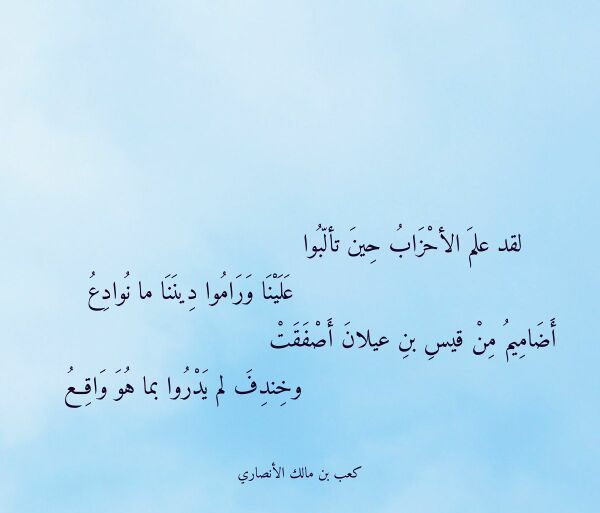 لقد علمَ الأحْزَابُ حِينَ تألّبُوا
عَلَيْنَا وَرَامُوا دِينَنَا ما نُوادِعُ
أَضَامِيمُ مِنْ قيسِ بنِ عيلانَ أَصْفَقَتْ
وخِندِفَ لم يَدْرُوا بما هُوَ وَاقِعُ
كعب بن مالك الأنصاري